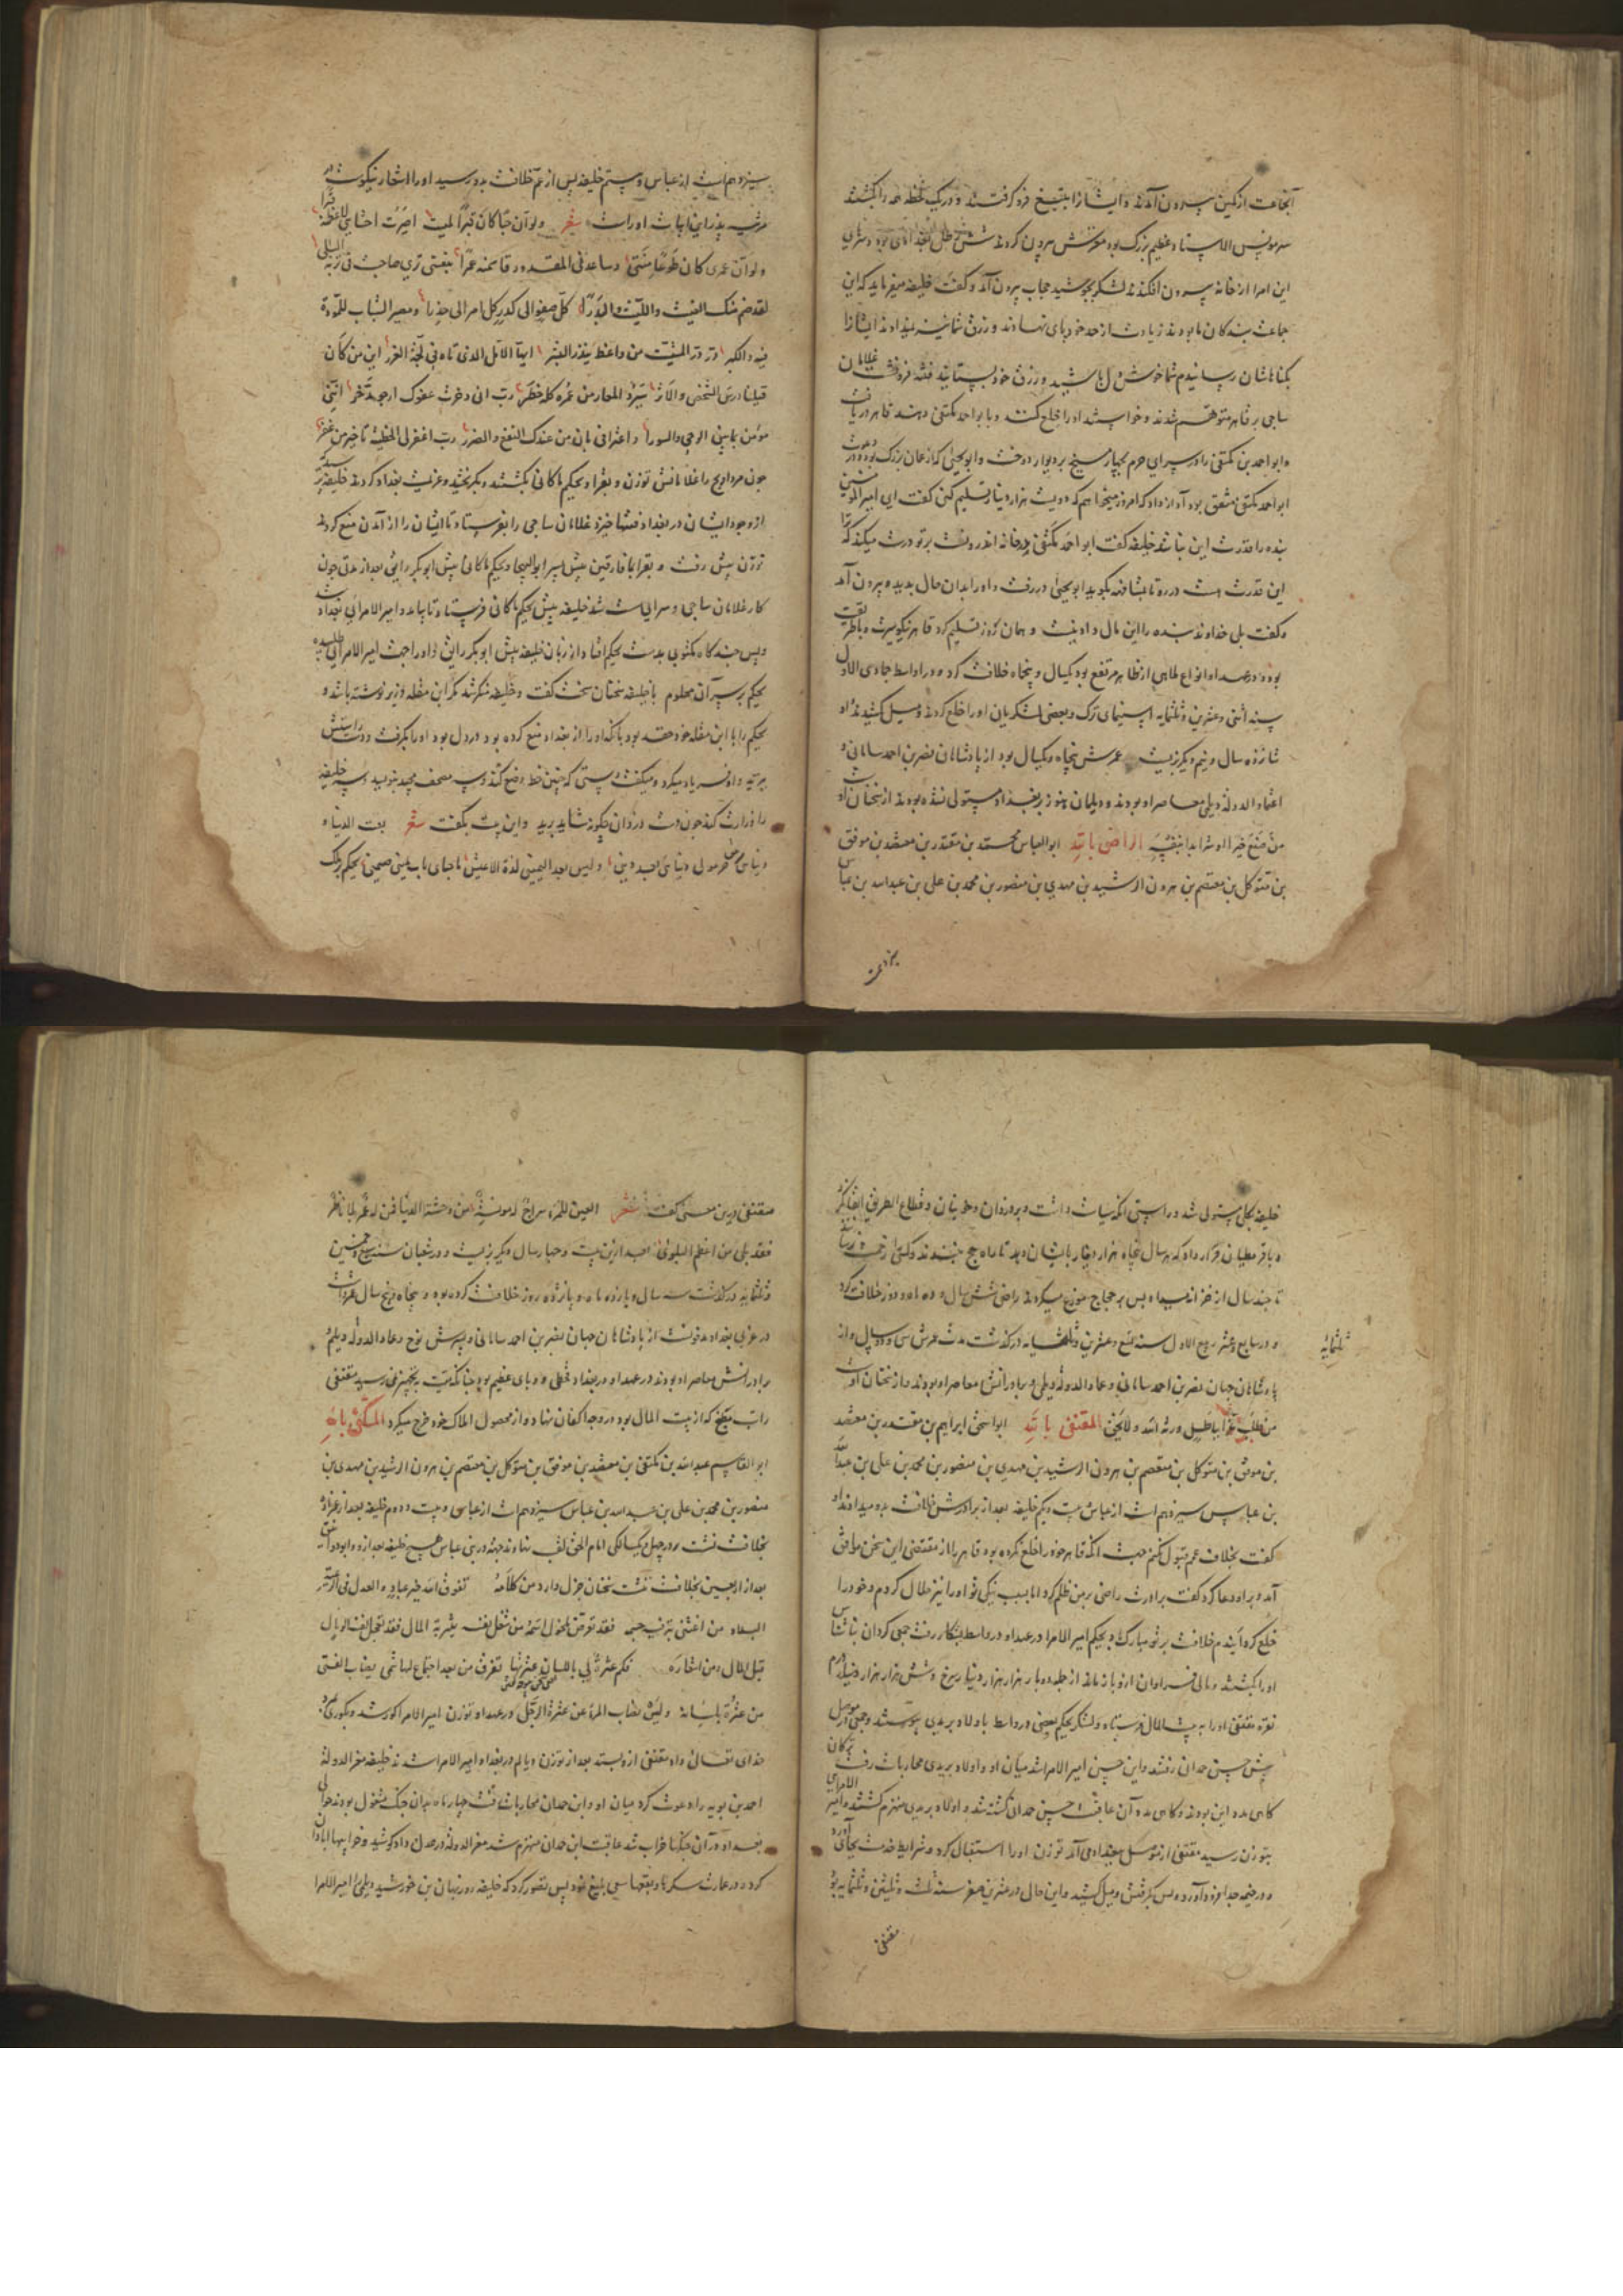 آنجماعت از کمین بیرون آمدند و ایشانرا بتیغ فرو گرفتند و در یک لحظه همه را بکشتند
سر مونس الاستاد عظیم بزرگ بود مغزش بیرون کردند شش رطل بغدادی بود و سرهای
این امرا از خانه بیرون افکندند لشکر بجوشید حجاب بیرون آمد و گفت خلیفه میفرماید که این
جماعت بندگان ما بودند زیادت از حد خود پای نهادند و رزق شما نیز نمیدادند ایشانرا
بگناهشان رسانیدم شما خوش دل باشید و رزق خود بستانید فتنه فرو نشست غلامان
ساجی بر قاهر متوهم شدند و خواستند او را خلع کنند و با ابو احمد مکتفی دهند قاهر دریافت
و ابو احمد بن مکتفی را در سرای حرم بچهار میخ بر دیوار دوخت و ابو یحیی که از بزرگ بود و در
ابو احمد مکتفی مشفق بود آواز داد که امروز میخواهم که دویست هزار دینار تسلیم کنی گفت ای امیر المومنین
بنده را قدرت این نباشد خلیفه گفت ابو احمد مکتفی در خانه اندرونست بر تو درست میکند که ترا
این قدرت هست در رو تا مشافهه بگوید ابو یحیی در رفت و او را بدان حال بدید و بیرون آمد
و گفت بلی خداوند بنده را این مال داده است و همان روز تسلیم کرد قاهر نیکو سیرت
بوده در عهد او انواع ملاهی از ظاهر مرتفع بود یکسال و پنجاه خلافت کرد و در اواسط جمادی الاول
سنه اثنی و عشرین و ثلثمایه سیمای ترک و بعضی لشکریان او را خلع کردند و میل کشیدند و او
شانزده سال و نیم دیگر بزیست عمرش پنجاه و یکسال بود از پادشاهان نصر بن احمد سامانی و
عماد الدوله دیلمی معاصر او بودند و دیلمان هنوز بر بغداد مستولی نشده بودند از سخنان اوست
من صنع خیرا او شرا بدا بنفسه الراضی بالله ابو العباس محمد بن مقتدر بن معتضد بن موفق
بن متوکل بن معتصم بن هرون الرشید بن مهدی بن منصور بن محمد بن علی بن عبدالله بن عباس
سیزدهم است از عباس و بیستم خلیفه پس از عم خلافت بدو رسید او را اشعار نیکوست در
مرثیه پدر این ابیات او راست شعر ولو ان حیا کان قبرا لمیت لصیرت احشای لاعظمه قبرا
ولو ان عمری کان طوع مشیتی وساعدنی المقدور قاسمته عمرا بنفسی ثری ضاجعت فی تربه البلی
لقد ضم منک الغیث واللیث والبدرا کل صفو الی کدر کل امر الی حذر ومصیر الشباب للموت
فیه والکبر در در المشیب من واعظ ینذر البشر ایها الآمل الذی تاه فی لجة الغرر این من کان
قبلنا درس الشخص والاثر سیرد المعار من عمره کله خطر رب انی ذخرت عفوک ارجوه مدخر اننی
مؤمن بما بین الوحی والسور واعترافی بان من عندک النفع والضرر رب اغفر لی الخطیة یا خیر من غفر
چون مرداویج را غلامانش توزن و بغرا و بحکم ماکانی بکشتند و بگریختند و عزیمت بغداد کردند خلیفه
از وجود ایشان در بغداد فتنها خیزد غلامان ساجی را بفرستاد تا ایشان را از آمدن منع کردند
توزن پیش رفت و بغرا بمیافارقین پیش پسر ابو الهیجا و بحکم ماکانی پیش ابو بکر رایق بعد از مدتی چون
کار غلامان ساجی و سرایی سست شد خلیفه پیش بحکم ماکانی فرستاد تا بیاید و امیر الامرایی بغداد
و پس چند گاه مکتوبی بدست بحکم افتاد از زبان خلیفه پیش ابو بکر رایق او را جهت امیر الامرایی طلبیده
بحکم بر سر آن معلوم با خلیفه سخنان سخت گفت و خلیفه منکر شد مگر ابن مقله وزیر نوشته باشد و
بحکم را با ابن مقله خود حقد بود بآنکه او را از بغداد منع کرده بود در دل بود او را بگرفت و دست راستش
ببرید و او فریاد میکرد و میگفت دستی که چنین خط وضع کند و سه مصحف مجید بنویسد و سه خلیفه
را وزارت کند چون دست دزدان چگونه شاید برید و این بیت بگفت شعر بعت الدنیاه
دنیای لهم بعد دینی ولیس بعد الیمین لذة الاعیش یا حیاتی بانت یمینی فبینی بحکم ترک
خلیفه بکلی مستولی شد و راستی آنکه سیاست داشت و بر دزدان و خونیان و قطاع الطریق ابقا نکرد
و با قرمطیان قرار داد که هر سال پنجاه هزار دینار بایشان دهد تا راه حج نبندند و کسی را زحمت نرسانند
تا چند سال از خزانه میداد پس بر حجاج موزع میکردند راضی شش سال و ده ماه و ده روز خلافت کرد
و در سابع عشر ربیع الاول سنه تسع و عشرین و ثلثمایه درگذشت مدت عمرش سی و دو سال و از
ثلثمایه
پادشاهان جهان نصر بن احمد سامانی و عماد الدوله دیلمی و برادرانش معاصر او بودند و از سخنان اوست
من طلب عزا بباطل ورثه الله ذلا بحق المتقی بالله ابو اسحق ابراهیم بن مقتدر بن معتضد
بن موفق بن متوکل بن معتصم بن هرون الرشید بن مهدی بن منصور بن محمد بن علی بن عبدالله
بن عباس سیزدهم است از عباس بیست و یکم خلیفه بعد از برادرش خلافت بدو میدادند او
گفت بخلاف عم قبول نکنم جهت آنکه قاهر خود را خلع نکرده بود قاهر را از متقی این سخن موافق
آمد و برو دعا کرد گفت برادرت راضی بر من ظلم کرد اما بسبب نیکی تو او را نیز حلال کردم و خود را
خلع کردم خلافت بر تو مبارک باد بحکم امیر الامرا در عهد او در واسط بشکار رفت جمعی کردان ناشناس
او را بکشتند و مالی فراوان ازو باز ماند از جمله دو بار هزار هزار دینار سرخ و شش بار هزار هزار درم
نقره متقی او را به بیت المال فرستاد و لشکر بحکم بعضی در واسط با اولاد بریدی پیوستند و جمعی بموصل
پیش حسین حمدان رفتند و این حسین امیر الامرا شد میان او و اولاد بریدی محاربات رفت ترکان
گاهی مدد این بودند و گاهی مدد آن عاقبت حسین حمدان کشته شد و اولاد بریدی منهزم گشتند و امیر الامرایی
بتوزن رسید متقی از موصل ببغداد می آمد توزن او را استقبال کرد و شرایط خدمت بجای آورد
و در خیمه جدا فرود آورد و پس بگرفتش و میل کشید و این حال در عشرین صفر سنه ثلث و ثلثین و ثلثمایه بود
متقی
متقی درین معنی گفت شعر العین للمرء سراج له مونسة من وحشة الدنیا فمن له عمر بلا ناظر
فقد بلی من اعظم البلوی بعد ازین بیست و چهار سال دیگر بزیست و در شعبان سنه سبع و خمسین
و ثلثمایه درگذشت سه سال و یازده ماه و پانزده روز خلافت کرده بود و پنجاه و پنج سال عمر داشت
در غربی بغداد مدفونست از پادشاهان جهان نصر بن احمد سامانی و پسرش نوح و عماد الدوله دیلمی و
برادرانش معاصر او بودند در عهد او در بغداد قحطی و وبای عظیم بود چنانکه میت بتجهیز نمی رسید متقی
راتب مطبخ که از بیت المال بود در وجه اکفان نهاد و از محصول املاک خود خرج میکرد المستکفی بالله
ابو القاسم عبدالله بن مکتفی بن معتضد بن موفق بن متوکل بن معتصم بن هرون الرشید بن مهدی بن
منصور بن محمد بن علی بن عبدالله بن عباس سیزدهم است از عباس و بیست و دوم خلیفه بعد از عمزاده
بخلافت نشست و در چهل و یکسالگی امام الحق لقب نهادند جهه در بنی عباس هیچ خلیفه بعد از و ابو دوانق
بعد از اربعین بخلافت ننشست سخنان جزل دارد من کلامه تفوق الله خیر عباده والعدل فی ارضه
البسلاد من اغتنی بترف حسبه فقد تعرض لخمول اسمه من شغل نفسه بثریة المال فقد تعجل لنفسه الوبال
قبل المال ومن اشعاره فکم عثرة لی باللسان عثرتها تفرق من بعد اجتماع لها شملی یصاب الفتی
من عثرة بلسانه ولیس یصاب المرء من عثرة الرجل در عهد او توزن امیر الامرا کور شد و بکوری بمرد
خدای تعالی داد متقی ازو بستد بعد از توزن دیالم در بغداد امیر الامرا شدند خلیفه معز الدوله
احمد بن بویه را دعوت کرد میان او و ابن حمدان محاربات رفت چهار ماه بدان جنگ مشغول بودند حوالی
بغداد در آن جنگها خراب شد عاقبت ابن حمدان منهزم شد معز الدوله در عدل و داد کوشید و خرابیها آبادان
کرد و در عمارت سکرها و بیعها سعی بلیغ نمود پس تصور کرد که خلیفه روزبهان بن خورشید دیلمی را امیر الامرا